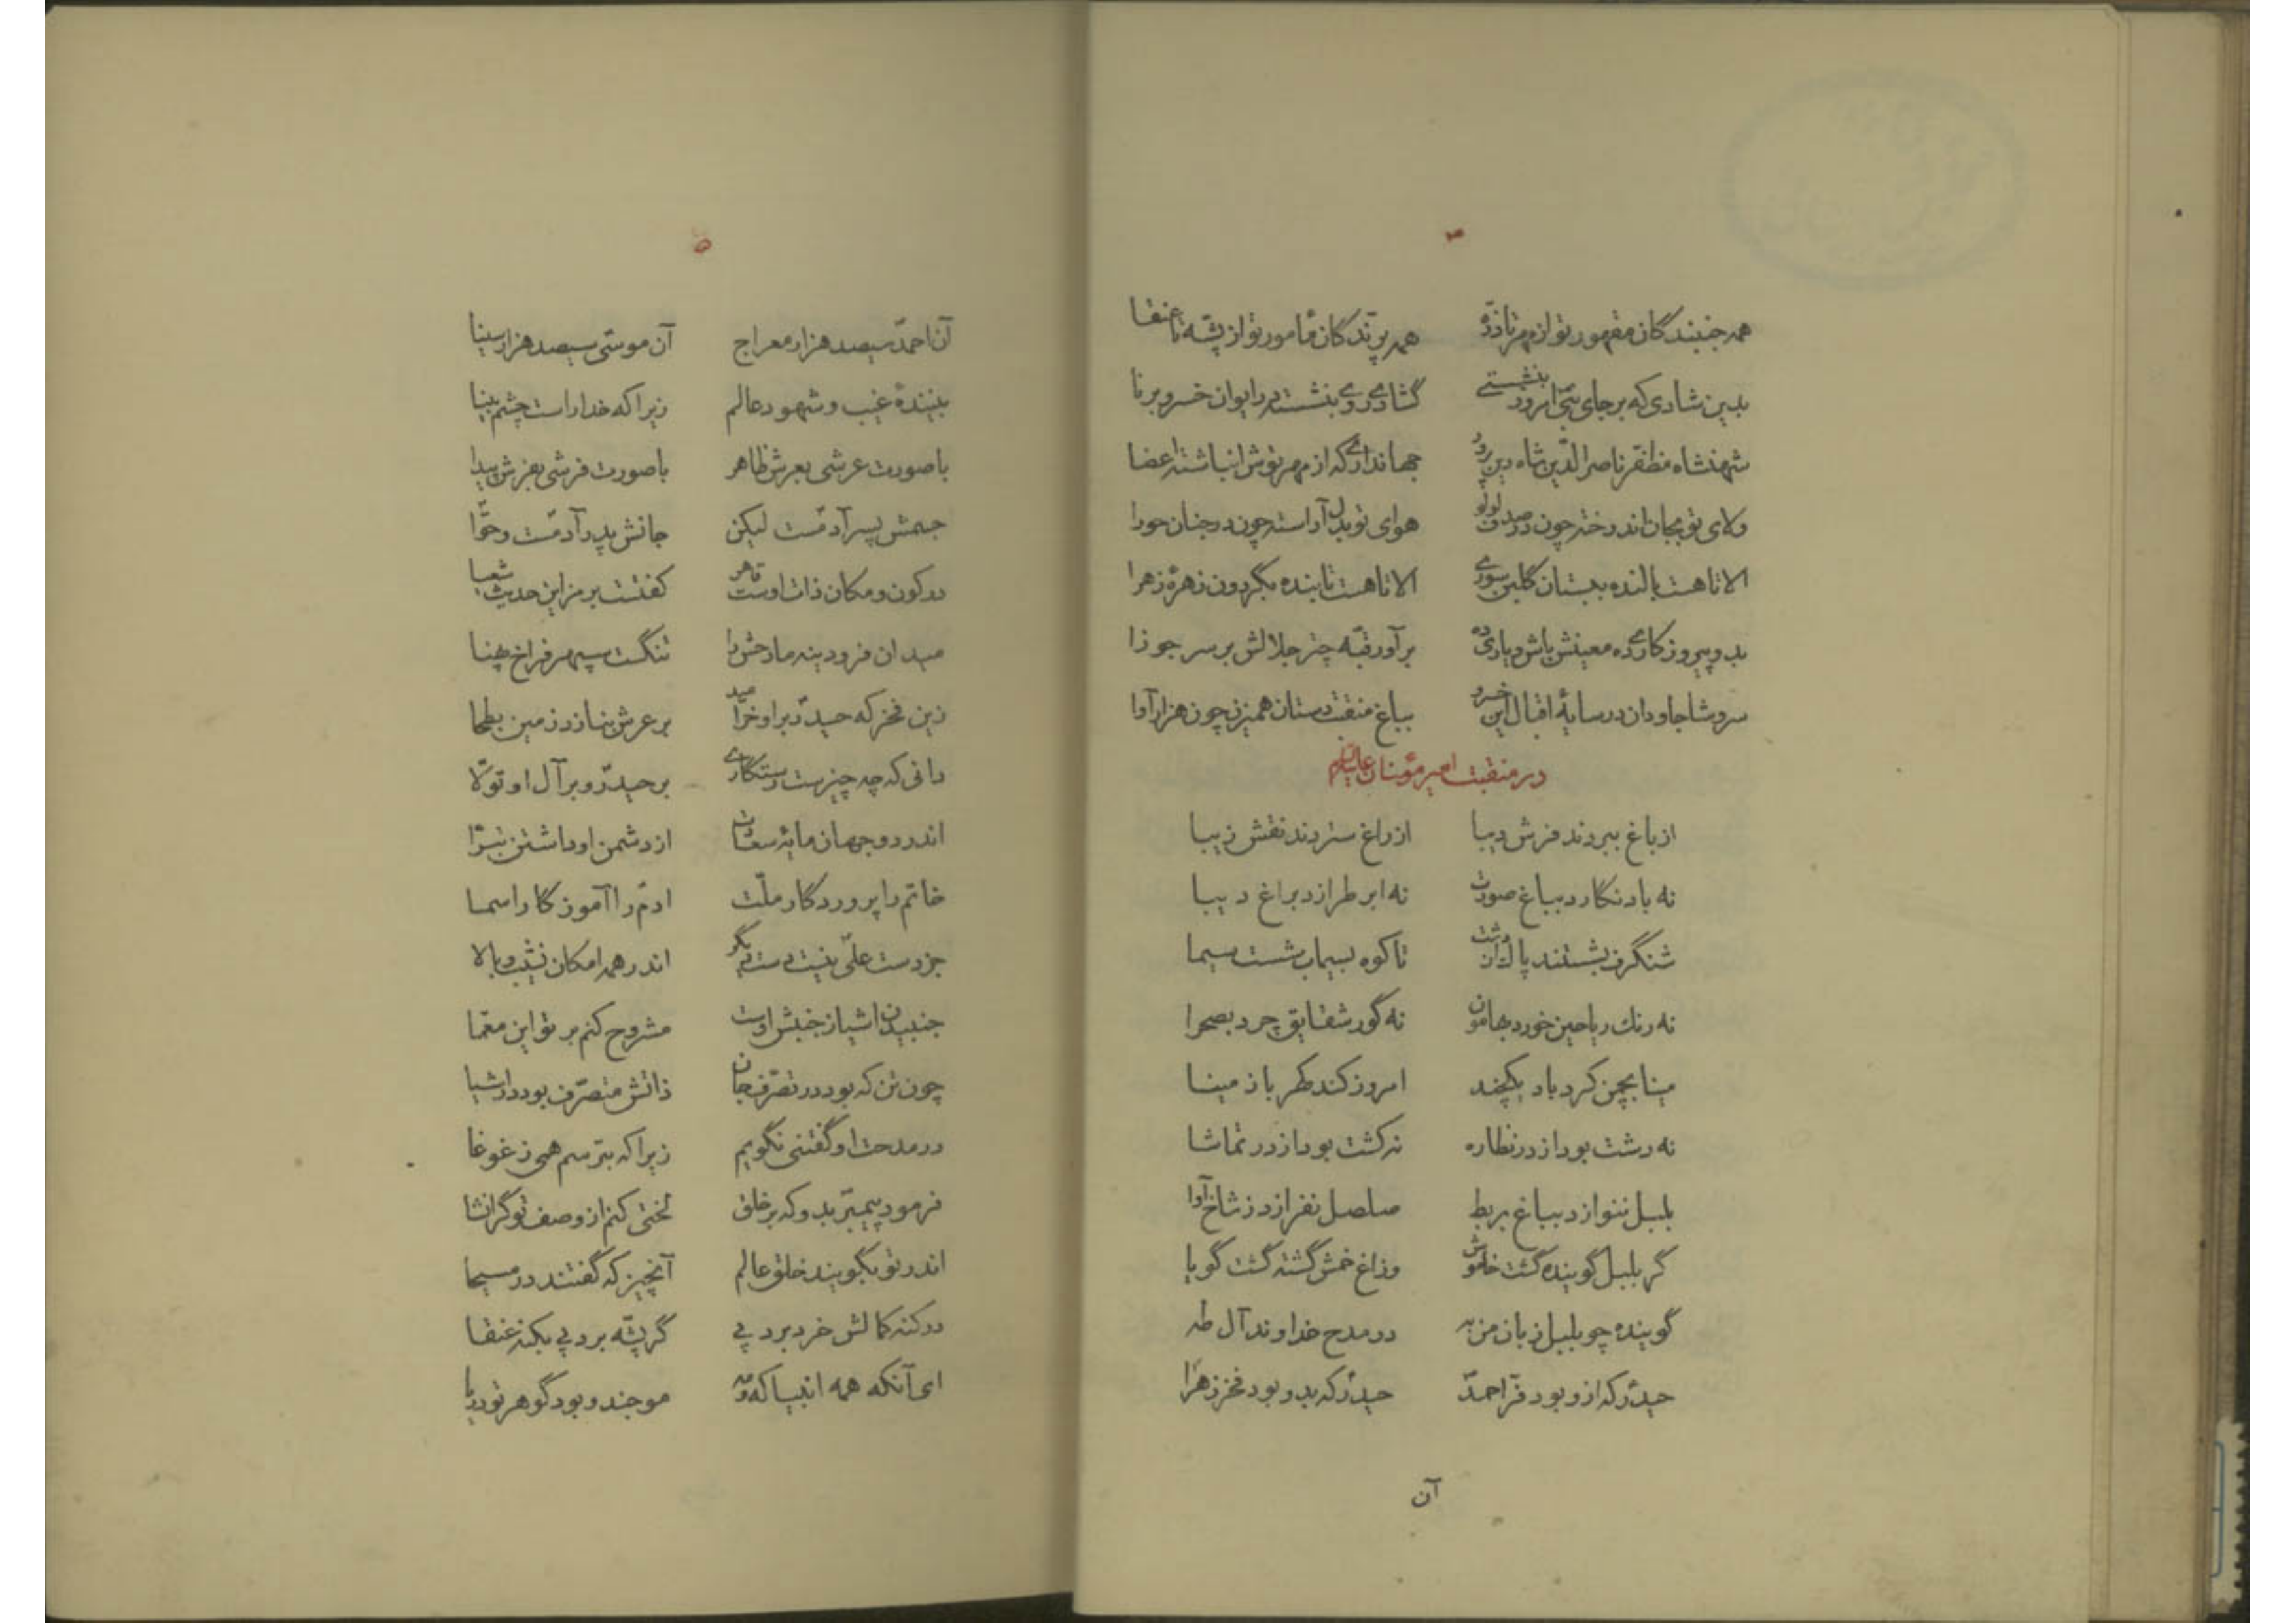 ۴
همه جنبندگان مقهور تو از مهر تا ذره همه پرّندگان مأمور تو از پشّه تا عنقا
بدین شادی که بر جای نبی امروز بنشستی گشاده روی بنشسته در ایوان خسرو برنا
شهنشاه مظفّر ناصرالدّین شاه دین پرور جهانداری که از مهر توش انباشته اعضا
ولای تو بجان اندوخته چون در صدف لولو هوای تو بدل آراسته چون در جنان حورا
الا تا هست بالنده ببستان گلبن سوری الا تا هست تابنده بگردون زهرهٔ زهرا
بدو پیروزکاری ده معینش باش و یاری ده برآور قبّه چتر جلالش بر سر جوزا
سروشا جاودان در سایهٔ اقبال این خسرو بباغ منقبت دستان همیزن چون هزارآوا
در منقبت امیر مؤمنان علیه السلام
از باغ ببردند فرش دیبا از راغ ستردند نقش زیبا
نه باد نگارد بباغ صورت نه ابر طرازد براغ دیبا
شنگرف بشستند پاک از دشت تا کوه بسیماب شست سیما
نه رنك ریاحین خورد بهامون نه گور شقایق چرد بصحرا
مینا بچمن کرد باد یکچند امروز کند کهربا ز مینا
نه دشت بود از در نظاره نه کشت بود از در تماشا
بلبل ننوازد بباغ بربط صلصل نفرازد ز شاخ آوا
گر بلبل گوینده گشت خاموش وزاغ خمش گشته گشت گویا
گوینده چو بلبل زبان من به در مدح خداوند آل طه
حیدر که ازو بود فرّ احمد حیدر که بدو بود فخر زهرا
آن
۵
آن احمد سیصد هزار معراج آن موسی سیصد هزار سینا
بینندهٔ غیب و شهود عالم زیرا که خدا راست چشم بینا
با صورت عرشی بعرش ظاهر با صورت فرشی بفرش پیدا
جسمش پسر آدمست لیکن جانش پدر آدمست و حوّا
در کون و مکان ذات اوست قاهر گفتست برمز این حدیث شعیا
میدان فرودینه مادحش را تنگست سپهر فراخ پهنا
زین فخر که حیدر برو خرامید بر عرش بنازد زمین بطحا
دانی که چه چیزست رستگاری بر حیدر و بر آل او تولّا
اندر دو جهان مایهٔ سعادت از دشمن او داشتن تبرّا
خاتم را پروردگار ملّت ادم را آموزگار اسما
جز دست علی نیست دست دیگر اندر همه امکان نشیب و بالا
جنبیدن اشیا ز جنبش اوست مشروح کنم بر تو این معمّا
چون تن که بود در تصرّف جان ذاتش متصرّف بود در اشیا
در مدحت او گفتنی نگویم زیرا که بترسم همی ز غوغا
فرمود پیمبر بدو که بر خلق لختی کنم از وصف تو گر انشا
اندر تو بگویند خلق عالم آنچیز که گفتند در مسیحا
در کنه کمالش خرد برد پی گر پشّه برد پی بکنه عنقا
ای آنکه همه انبیا که و مه موجند و بود گوهر تو دریا